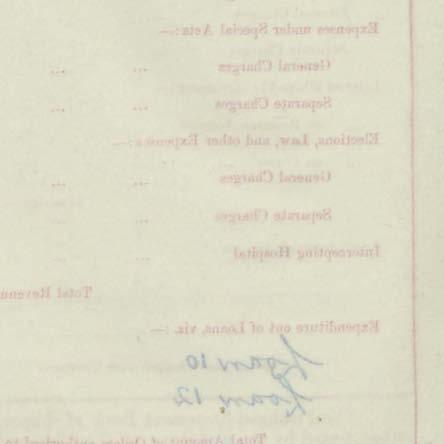 Expenses under Special Acts:—
General Charges ... ...
Separate Charges ... ...
Elections, Law, and other Expenses:—
General Charges ... ...
Separate Charges ... ...
Intercepting Hospital ... ...
Total Revenu
Expenditure out of Loans, viz. :—
Loan 10
Loan 12
Total Amount of Orders authorised to